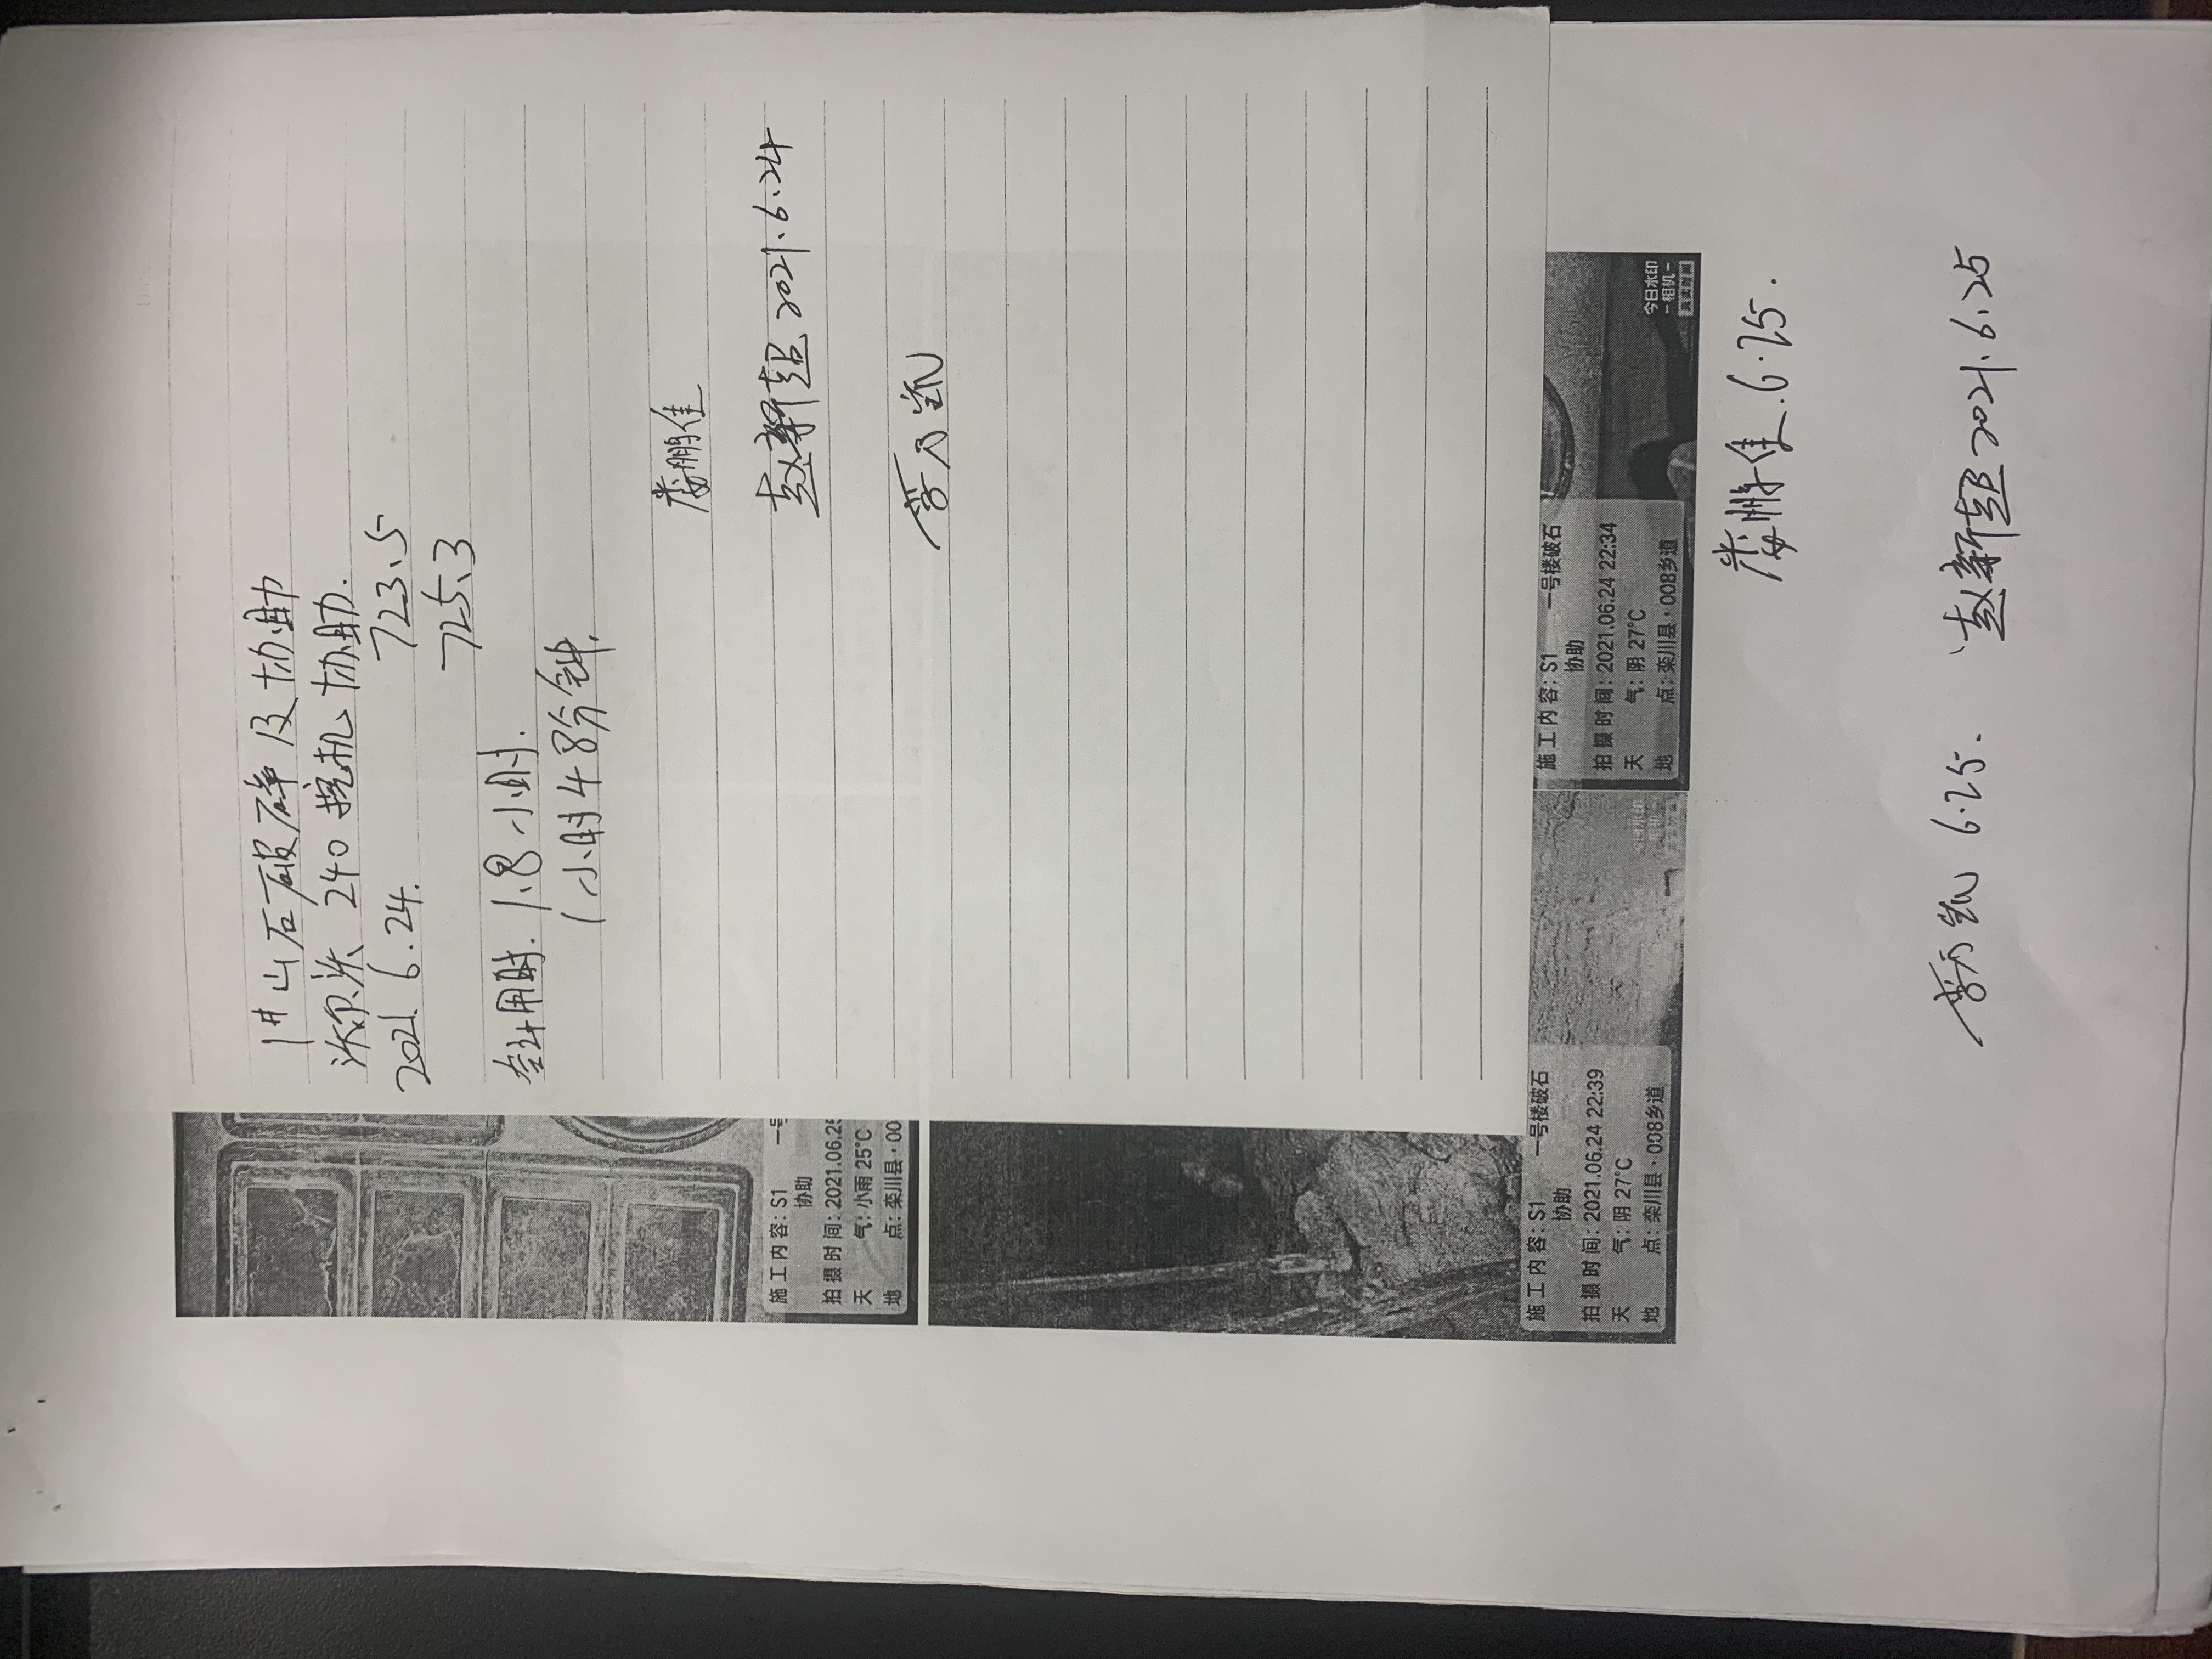 1# 山石破碎及协助
沃尔沃 240 挖机协助.
2021. 6. 24. 723.5
725.3
合计用时. 1.8小时.
1小时48分钟.
娄鹏佳
赵新超 2021.6.24
施工内容: S1 一号楼破石
协助
拍摄时间: 2021.06.24 22:34
天 气: 阴 27℃
地 点: 栾川县·008乡道
今日水印
-相机-
施工内容: S1 一号楼破石
协助
拍摄时间: 2021.06.24 22:39
天 气: 阴 27℃
地 点: 栾川县·008乡道
施工内容: S1 一号
协助
拍摄时间: 2021.06.2
天 气: 小雨 25℃
地 点: 栾川县·00
娄鹏佳. 6.25.
6.25. 赵新超 2021.6.25